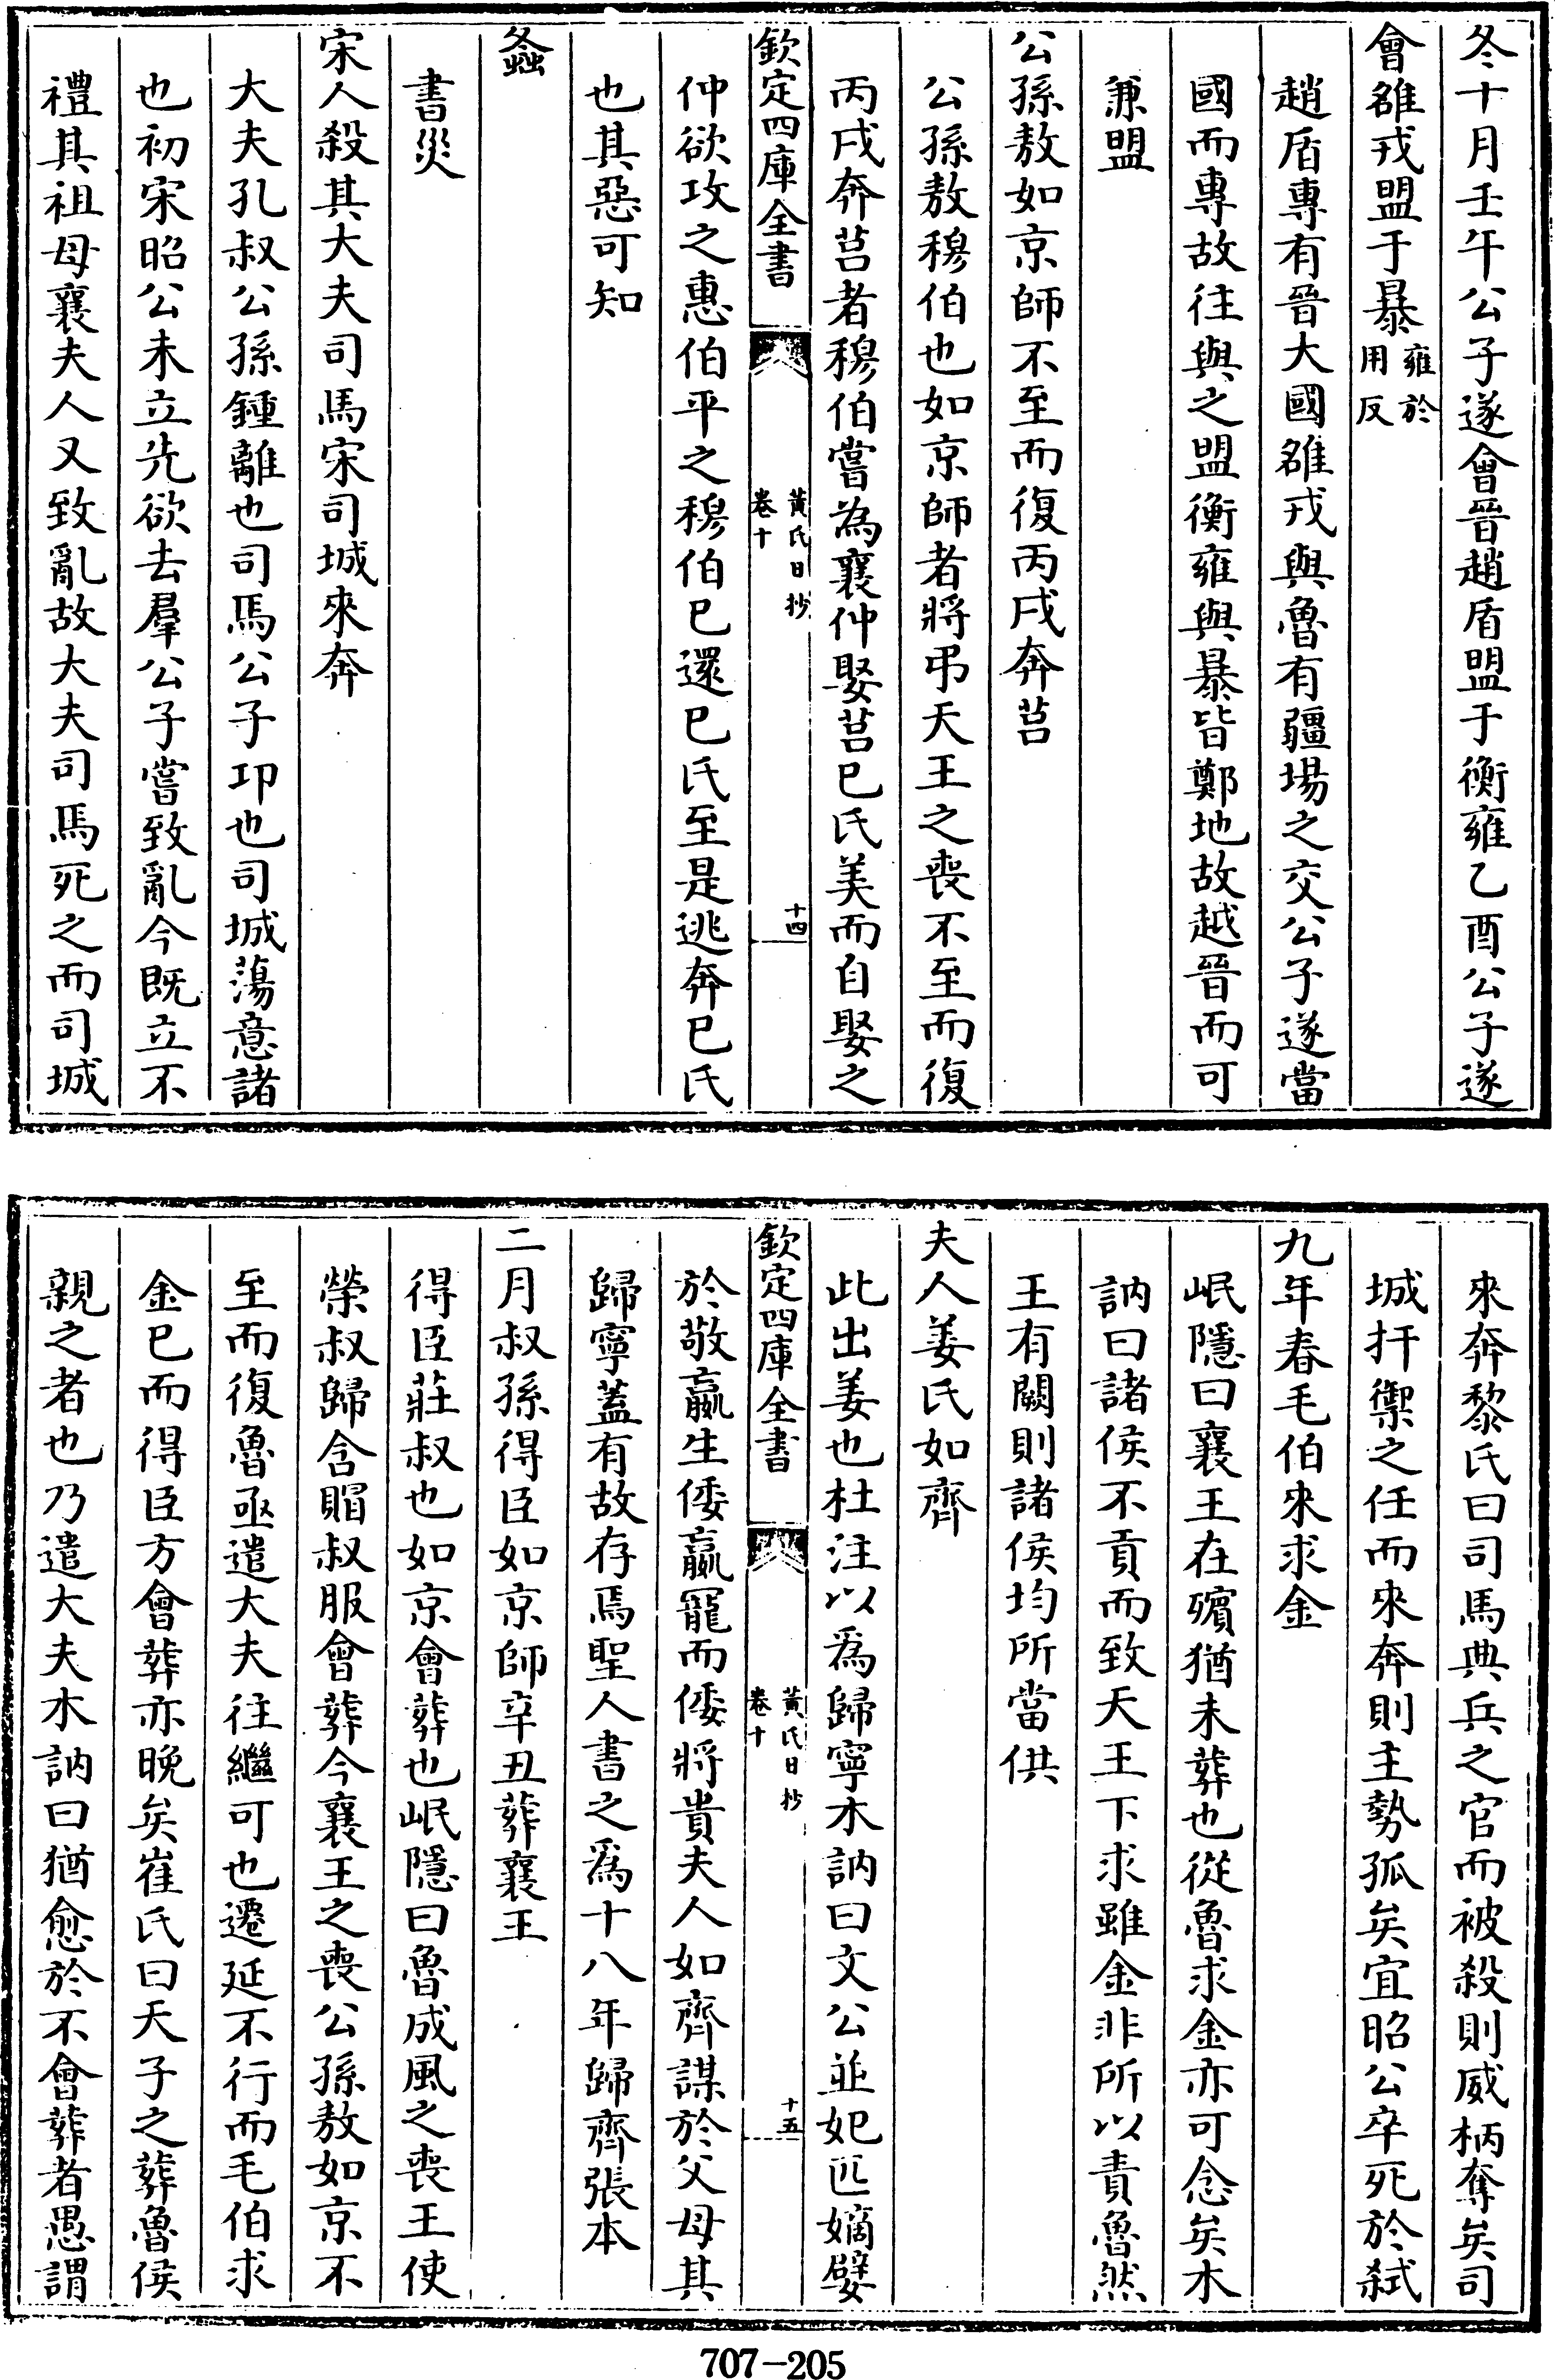 冬十月壬午公子遂會晉趙盾盟于衡雍乙酉公子遂
會雒戎盟于暴雍於用反
趙盾專有晉大國雒戎與魯有疆場之交公子遂當
國而專故往與之盟衡雍與暴皆鄭地故越晉而可
兼盟
公孫敖如京師不至而復丙戌奔莒
公孫敖穆伯也如京師者將弔天王之喪不至而復
丙戌奔莒者穆伯嘗為襄仲娶莒巳氏美而自娶之
欽定四庫全書
黃氏日抄
卷十
十四
仲欲攻之惠伯平之穆伯巳還巳氏至是逃奔巳氏
也其惡可知
螽
書災
宋人殺其大夫司馬宋司城來奔
大夫孔叔公孫鍾離也司馬公子卭也司城蕩意諸
也初宋昭公未立先欲去羣公子嘗致亂今既立不
禮其祖母襄夫人又致亂故大夫司馬死之而司城
來奔黎氏曰司馬典兵之官而被殺則威柄奪矣司
城扞禦之任而來奔則主勢孤矣宜昭公卒死於弑
九年春毛伯來求金
岷隱曰襄王在殯猶未葬也從魯求金亦可念矣木
訥曰諸侯不貢而致天王下求雖金非所以責魯然
王有闕則諸侯均所當供
夫人姜氏如齊
此出姜也杜注以爲歸寧木訥曰文公並妃匹嫡嬖
欽定四庫全書
黃氏日抄
卷十
十五
於敬嬴生倭嬴寵而倭將貴夫人如齊謀於父母其
歸寧蓋有故存焉聖人書之爲十八年歸齊張本
二月叔孫得臣如京師辛丑葬襄王
得臣莊叔也如京會葬也岷隱曰魯成風之喪王使
榮叔歸含賵叔服會葬今襄王之喪公孫敖如京不
至而復魯亟遣大夫往繼可也遷延不行而毛伯求
金巳而得臣方會葬亦晚矣崔氏曰天子之葬魯侯
親之者也乃遣大夫木訥曰猶愈於不會葬者愚謂
707-205